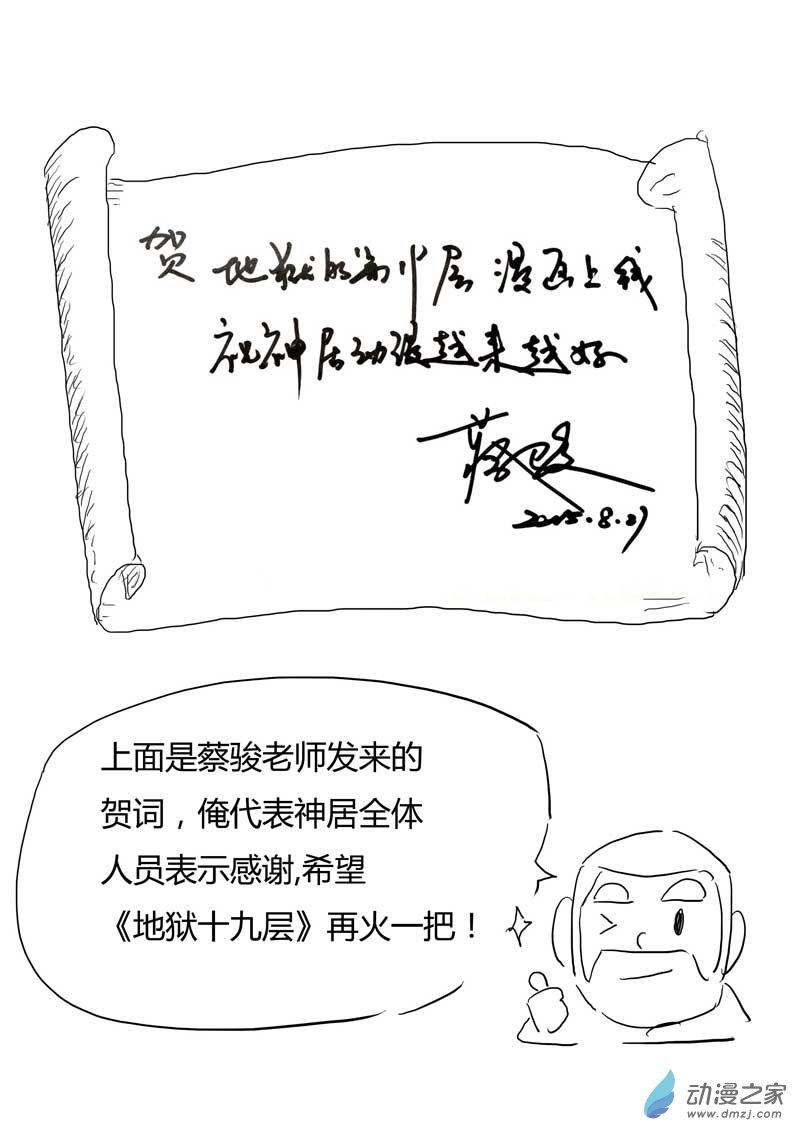 贺 地狱的第19层 漫画上线
祝神居动漫越来越好
蔡骏
2015.8.27
上面是蔡骏老师发来的
贺词，俺代表神居全体
人员表示感谢,希望
《地狱十九层》再火一把！
动漫之家
www.dmzj.com